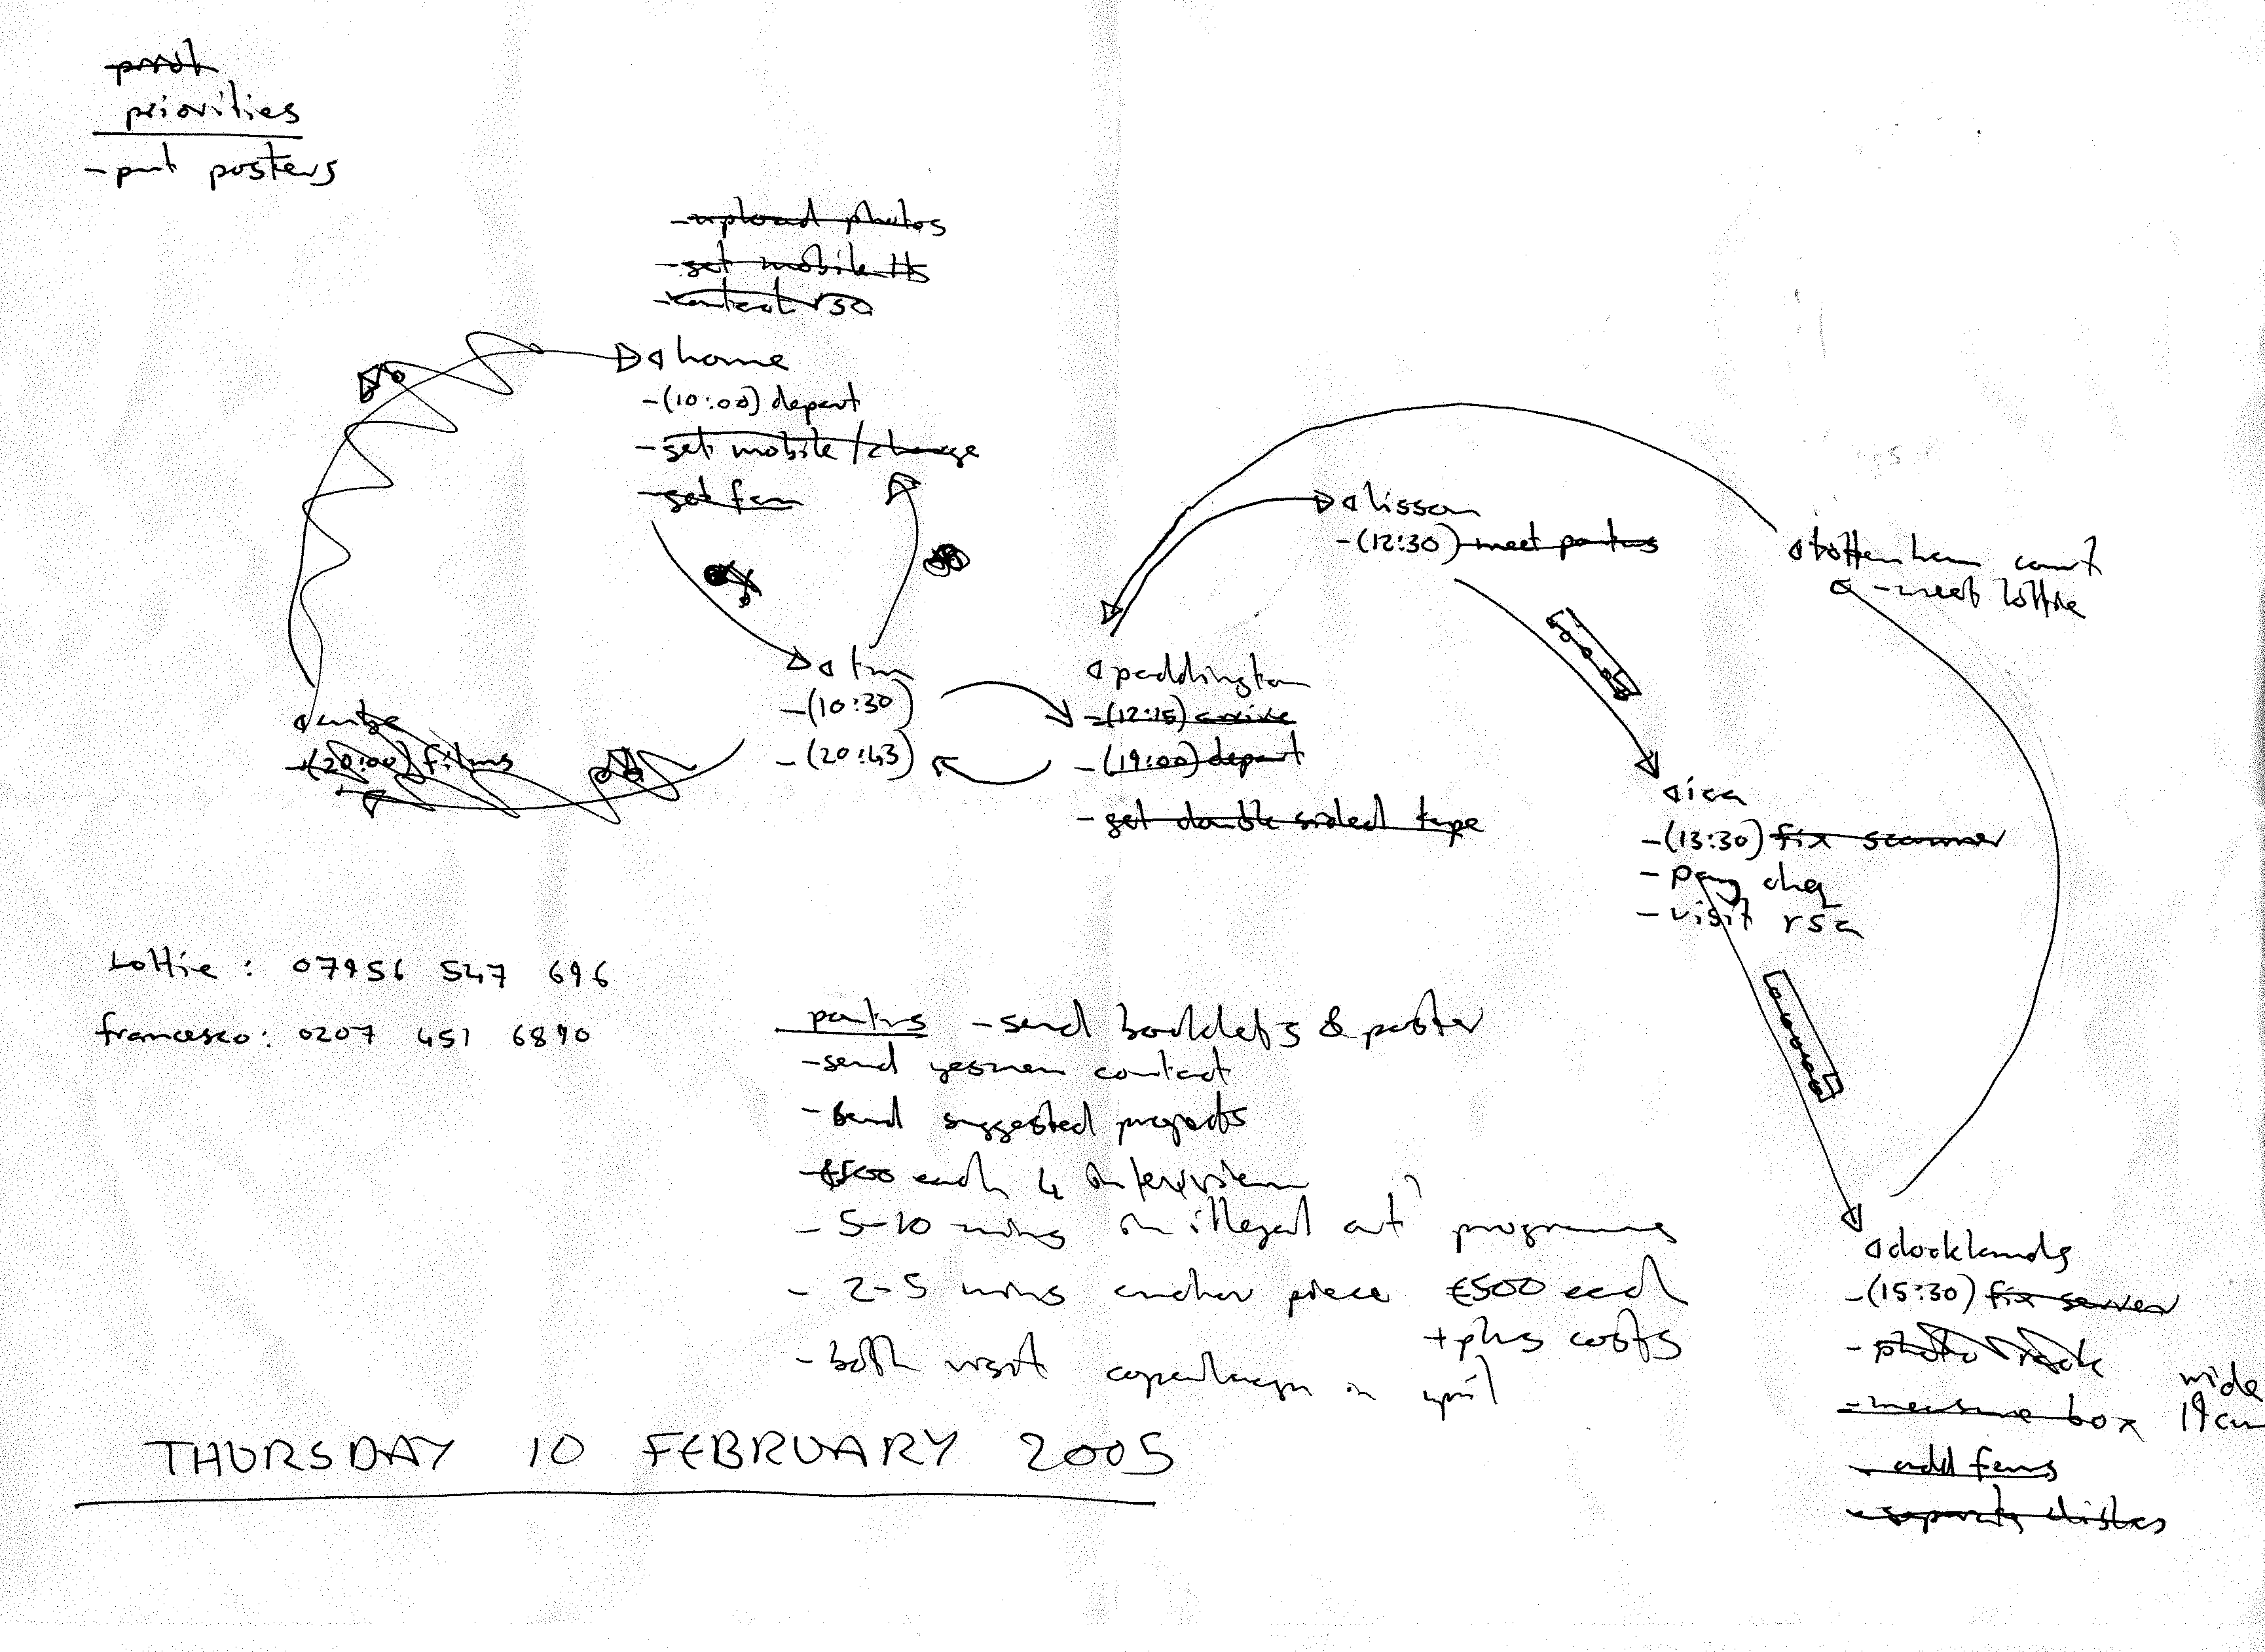 priorities
- put posters
- upload photos
- get mobile tts
- contact rsa
home
- (10:00) depart
- get mobile / change
- get fan
lisson
- (12:30) meet partus
tottenham court
- meet lottie
tm
- (10:30)
- (20:43)
paddington
- (12:15) arrive
- (19:00) depart
- get double sided tape
cube
- (20:00) films
ica
- (13:30) fix scanner
- pay chq
- visit rsa
Lottie : 07956 547 696
francesco : 0207 451 6890
- send booklets & poster
- send yesmen contact
- send suggested projects
each 4 interview
- 5-10 mins on illegal art programme
- 2-5 mins another piece €500 each
+ plus costs
- both visit copenhagen in april
docklands
- (15:30) fix server
- photo rack
- measure box wide 19cm
- add fans
- separate disks
THURSDAY 10 FEBRUARY 2005